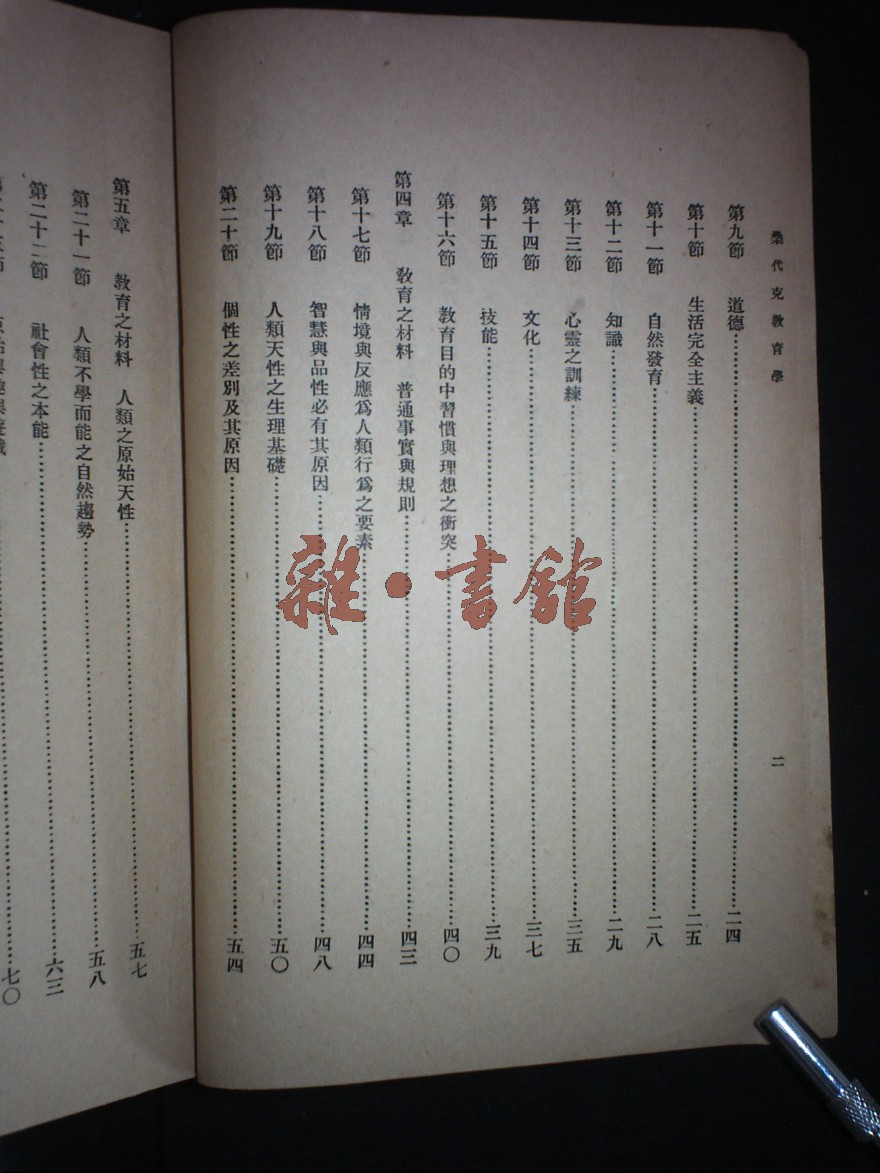 桑代克教育學
二
第九節 道德……二四
第十節 生活完全主義……二五
第十一節 自然發育……二八
第十二節 知識……二九
第十三節 心靈之訓練……三五
第十四節 文化……三七
第十五節 技能……三九
第十六節 教育目的中習慣與理想之衝突……四〇
第四章 教育之材料 普通事實與規則……四三
第十七節 情境與反應爲人類行爲之要素……四四
第十八節 智慧與品性必有其原因……四八
第十九節 人類天性之生理基礎……五〇
第二十節 個性之差別及其原因……五四
第五章 教育之材料 人類之原始天性……五七
第二十一節 人類不學而能之自然趨勢……五八
第二十二節 社會性之本能……六三
七〇
雜·書館